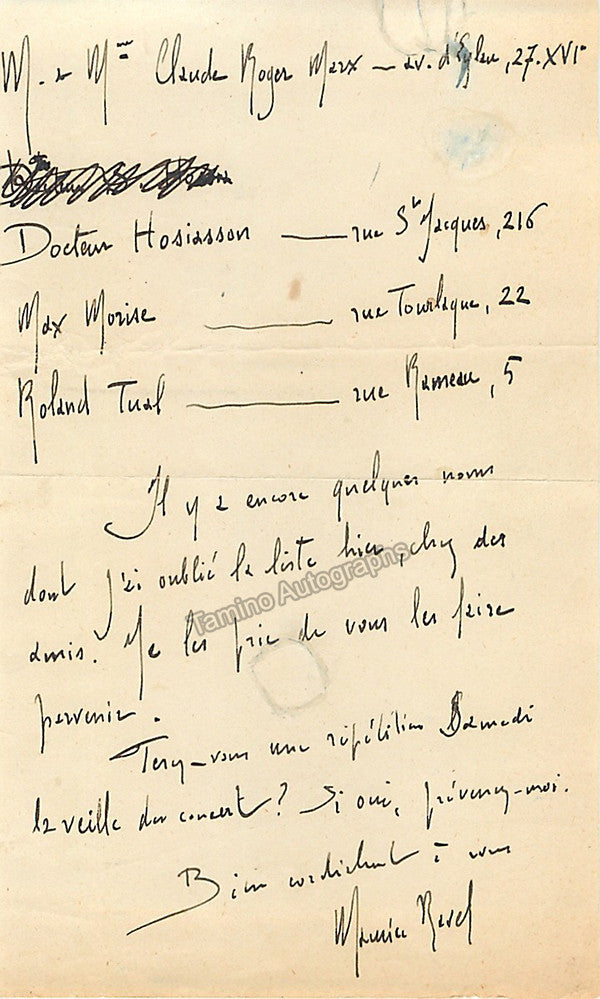 M. & Mme Claude Roger Marx — av. d'Eylau, 27. XVIe
Docteur Hosiasson — rue St Jacques, 216
Max Morise — rue Tourlaque, 22
Roland Tual — rue Rameau, 5
Il y a encore quelques noms
dont j'ai oublié la liste hier, chez des
amis. Je les prie de vous les faire
parvenir.
Ferez-vous une répétition Samedi
la veille du concert? Si oui, prévenez-moi.
Bien cordialement à vous
Maurice Ravel
Tamino Autographs